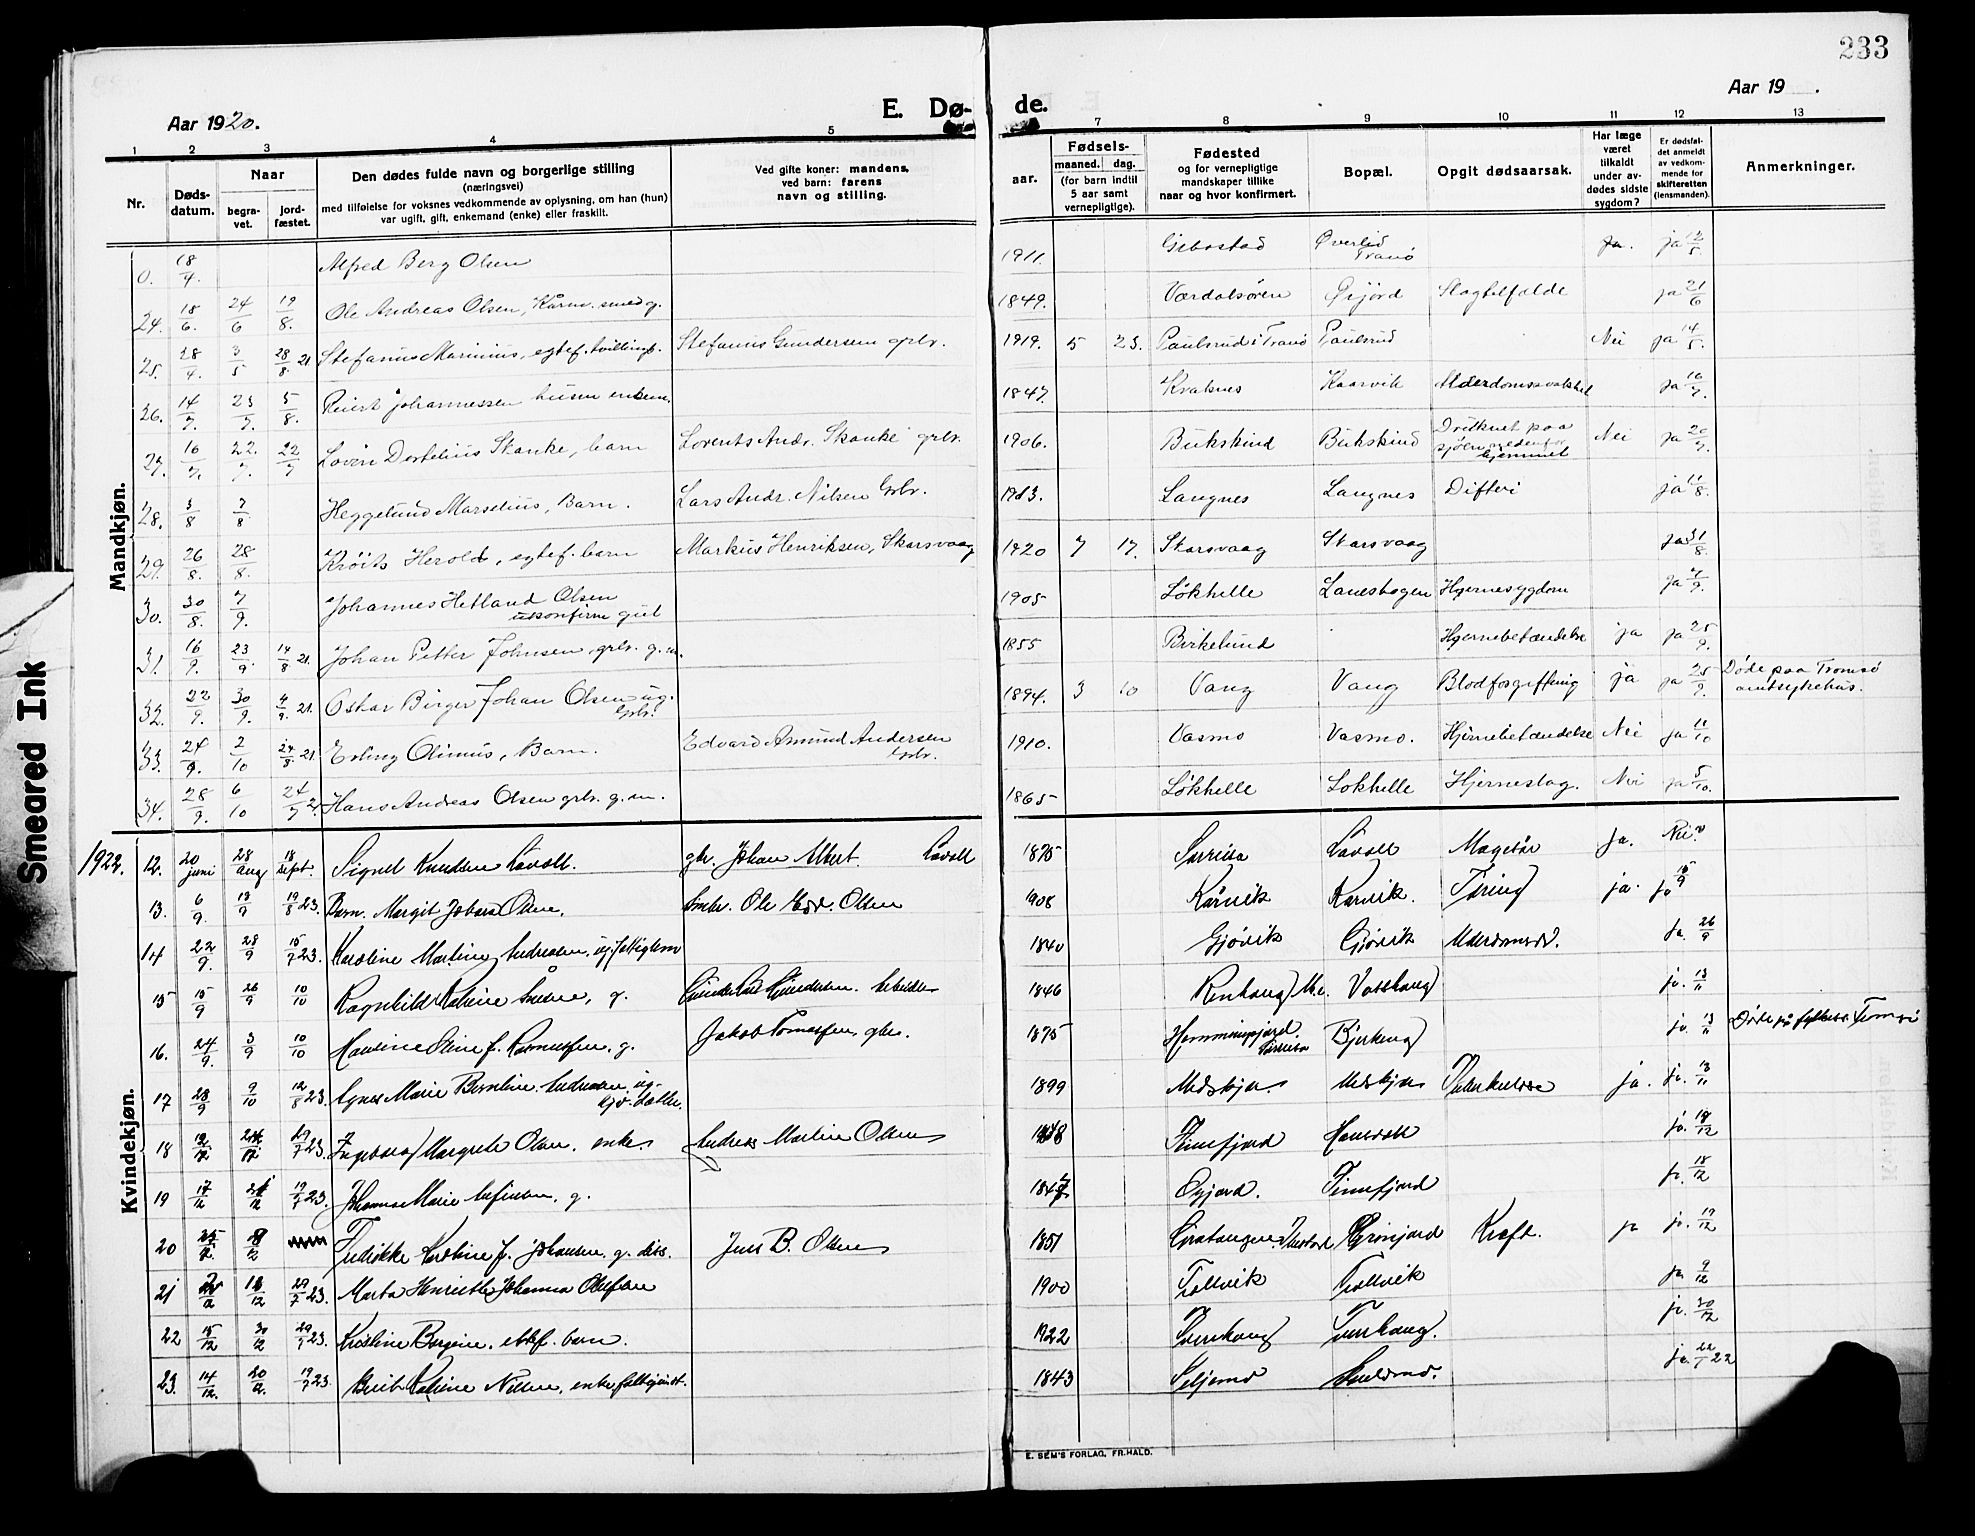 233
Aar 1920.
E. Dø-
de.
Aar 19 .
1 2 3 4 5 7 8 9 10 11 12 13
Nr.
Døds-
datum.
Naar
begra-
vet.
jord-
fæstet.
Den dødes fulde navn og borgerlige stilling
(næringsvei)
med tilføielse for voksnes vedkommende av oplysning, om han (hun)
var ugift, gift, enkemand (enke) eller fraskilt.
Ved gifte koner: mandens,
ved barn: farens
navn og stilling.
aar.
Fødsels-
maaned. dag.
(for barn indtil
5 aar samt
vernepligtige).
Fødested
og for vernepligtige
mandskaper tillike
naar og hvor konfirmert.
Bopæl.
Opgit dødsaarsak.
Har læge
været
tilkaldt
under av-
dødes sidste
sygdom?
Er dødsfal-
det anmeldt
av vedkom-
mende for
skifteretten
(lensmanden).
Anmerkninger.
Mandkjøn.
0. 18/4. Alfred Berg Olsen 1911. Gibostad Øverlid Tranø ja. ja 12/5.
24. 18/6. 24/6 19/8. Ole Andreas Olsen, Kårm. smed g. 1849. Værdalsøren Øijord Slagtilfælde ja 21/6
25. 28/4. 3/5 28/8 21 Stefanus Marinius, egtef. tvillingb. Stefanus Gundersen grbr. 1919. 5 23. Paulsrud i Tranø Paulsrud Nei ja 14/5.
26. 14/7. 23/7. 5/8. Peiert Johannessen husm enkem. 1847. Kvaknes Kaarvik Alderdomssvakhet ja 16/7.
27. 16/7. 22./7. 22/7 Lovin Dortelius Skanke, barn Lorents Andr. Skanke grbr. 1906. Bukskind Bukskind Druknet paa sjøen nedenfor hjemmet Nei ja 20/7.
28. 3/8 7/8. Heggelund Marselius, Barn. Lars Andr. Nilsen Grbr. 1913. Langnes Langnes Difteri ja 11/8.
29. 26/8. 28/8. Krøits Herold, egtef. barn Markus Henriksen, Skarsvaag 1920 7 17. Skarsvaag Skarsvaag ja 31/8.
30. 30/8. 7/9. Johannes Hetland Olsen
ukonfirm gut 1905 Løkhelle Lanesbogen Hjernesygdom ja 7/9.
31. 16/9. 23/9. 14/8 21. Johan Petter Johnsen, grbr. g. m. 1855 Birkelund Hjernebetændelse ja ja 25/9.
32. 22/9. 30/9. 4/9. 21. Oskar Birger Johan Olsen ug.
Grbr. 1894. 3 10 Vang Vang Blodforgiftning ja ja 25/9. Døde paa Tromsø
amtsykehus.
33. 24/9. 2/10 24/8 21 Erling Olinius, Barn. Edvard Amund Andersen
Grbr. 1910. Vasmo Vasmo. Hjernebetændelse Nei ja 11/10
34. 28/9. 6/10 24/7 2 Hans Andreas Olsen grbr. g. m. 1865 Løkhelle Løkhelle Hjerneslag. Nei ja 5/10.
Kvindekjøn.
1922. 12. 20 juni 28 aug 18 sept. Signel Knudsen Løvoll. gbr. Johan Albert Løvoll 1875 Sørreisa Løvoll Magesår Ja. Nei
13. 6/9. 13/9 19/8 23. Barn. Margit Jobara Olsen. Småbr. Ole Edv. Olsen 1908 Kårvik Kårvik. Tæring ja. ja 15/9
14 22/9. 28/9 15/7 23. Karoline Martine Andreassen, ug. fattiglem 1840 Gjøvik Gjøvik Alderdomssv. Ja. 26/9
15 15/9 26/9 10/10 Ragnhild Katrine g. arbeider 1846 ja. 13/11
16. 24/9. 3/9 10/10 Hanline Stine f. Rasmussen. g. Jakob Tomassen, gbr. 1875 Hemmingsjord Sørreisa Bjorhaug ja. 13/11 Døde på Tromsø
17 28/9 9/10 12/8 23. Agnes Marie Bernline Andreassen ug. 1899 Medskjær Medskjær Tuberkulose ja. ja. 13/11
18 29/7 23. Ingeborg Margrete Olsen. enke Andreas Martin Olsen Finnfjord ja. 19/12
19 17/12 19/7 23. Johanna Marie g. Øyjord. Finnfjord ja. 18/12
20 Fredrikke Karoline f. Johansen. g. diss. Jens B. Olsen 1851 Grønjord Kræft. ja ja. 19/12
21 18/12 29/7 23. Marta Henriette Johanna Olufsen 1900 Trollvik Trollvik ja. 9/12
22 15/12 30/12 29/7 23. Kristine Bergine. ektef. barn. 1922 Tverrhaug Tverrhaug. ja. 30/12
23. 14/12. 20/12. 19/7 23. Berit Katrine Nilsen, enke, 1843 Seljemo ja. 22/1 22
E. SEM'S FORLAG, FR.HALD.
Smeared Ink